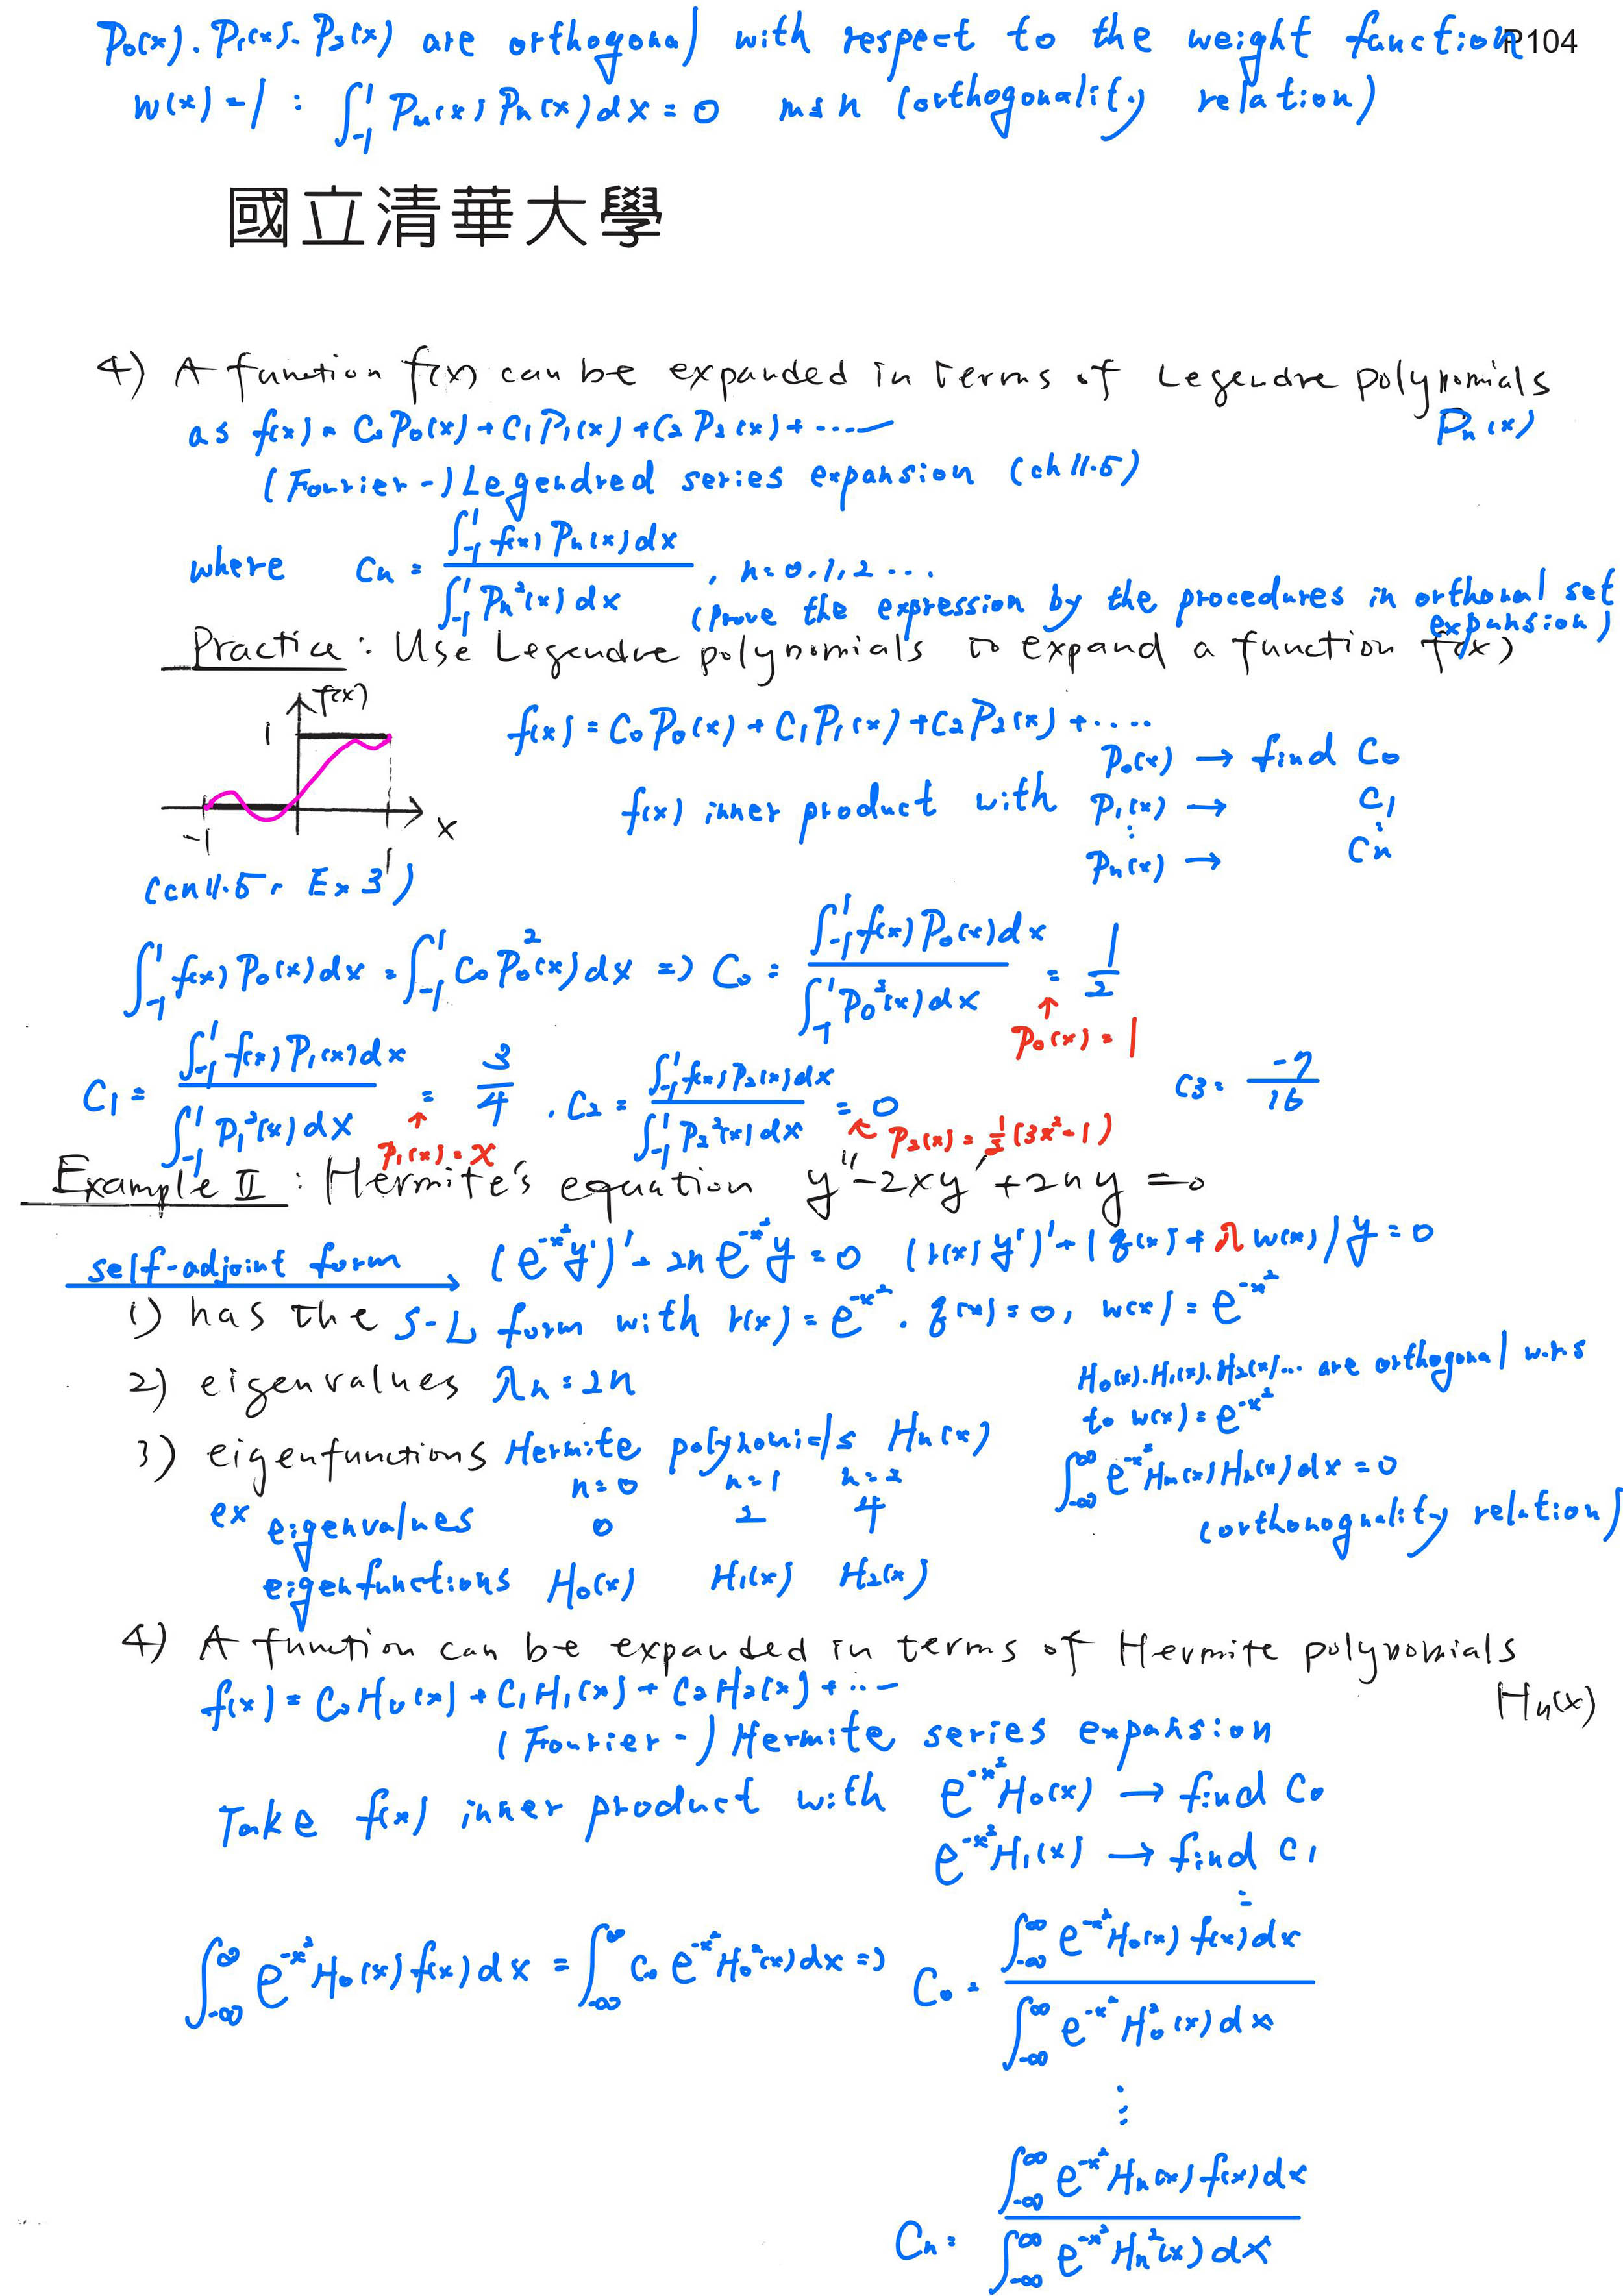 P₀(x). P₁(x). P₂(x) are orthogonal with respect to the weight function
P104
w(x) = 1 : ∫₋₁¹ Pₘ(x) Pₙ(x) dx = 0 m≠n (orthogonality relation)
國立清華大學
4) A function f(x) can be expanded in terms of Legendre polynomials
Pₙ(x)
as f(x) = C₀P₀(x) + C₁P₁(x) + C₂P₂(x) + ·····
(Fourier-) Legendred series expansion (ch 11.5)
where Cₙ = ∫₋₁¹ f(x) Pₙ(x) dx / ∫₋₁¹ Pₙ²(x) dx , n = 0, 1, 2 ...
(Prove the expression by the procedures in orthonal set expansion)
Practice : Use Legendre polynomials to expand a function f(x)
f(x)
1
-1
1
x
(ch 11.5, Ex 3)
f(x) = C₀P₀(x) + C₁P₁(x) + C₂P₂(x) + ....
f(x) inner product with P₀(x) → find C₀
P₁(x) → C₁
⋮
Pₙ(x) → Cₙ
∫₋₁¹ f(x) P₀(x) dx = ∫₋₁¹ C₀ P₀²(x) dx => C₀ = ∫₋₁¹ f(x) P₀(x) dx / ∫₋₁¹ P₀²(x) dx = 1/2
↑ P₀(x) = 1
C₁ = ∫₋₁¹ f(x) P₁(x) dx / ∫₋₁¹ P₁²(x) dx = 3/4 . C₂ = ∫₋₁¹ f(x) P₂(x) dx / ∫₋₁¹ P₂²(x) dx = 0 C₃ = -7/16
↑ P₁(x) = x ↖ P₂(x) = 1/2 (3x²-1)
Example II : Hermite's equation y'' - 2xy' + 2ny = 0
self-adjoint form → (e^(-x²) y')' + 2n e^(-x²) y = 0 (r(x) y')' + (q(x) + λ w(x)) y = 0
1) has the S-L form with r(x) = e^(-x²). q(x) = 0, w(x) = e^(-x²)
2) eigenvalues λₙ = 2n
3) eigenfunctions Hermite polynomials Hₙ(x)
n=0 n=1 n=2
ex eigenvalues 0 2 4
eigenfunctions H₀(x) H₁(x) H₂(x)
H₀(x). H₁(x). H₂(x)... are orthogonal w.r.s
to w(x) = e^(-x²)
∫₋∞^∞ e^(-x²) Hₘ(x) Hₙ(x) dx = 0
(orthonognality relation)
4) A function can be expanded in terms of Hermite polynomials
Hₙ(x)
f(x) = C₀H₀(x) + C₁H₁(x) + C₂H₂(x) + ...
(Fourier-) Hermite series expansion
Take f(x) inner product with e^(-x²) H₀(x) → find C₀
e^(-x²) H₁(x) → find C₁
⋮
∫₋∞^∞ e^(-x²) H₀(x) f(x) dx = ∫₋∞^∞ C₀ e^(-x²) H₀²(x) dx => C₀ = ∫₋∞^∞ e^(-x²) H₀(x) f(x) dx / ∫₋∞^∞ e^(-x²) H₀²(x) dx
⋮
Cₙ = ∫₋∞^∞ e^(-x²) Hₙ(x) f(x) dx / ∫₋∞^∞ e^(-x²) Hₙ²(x) dx